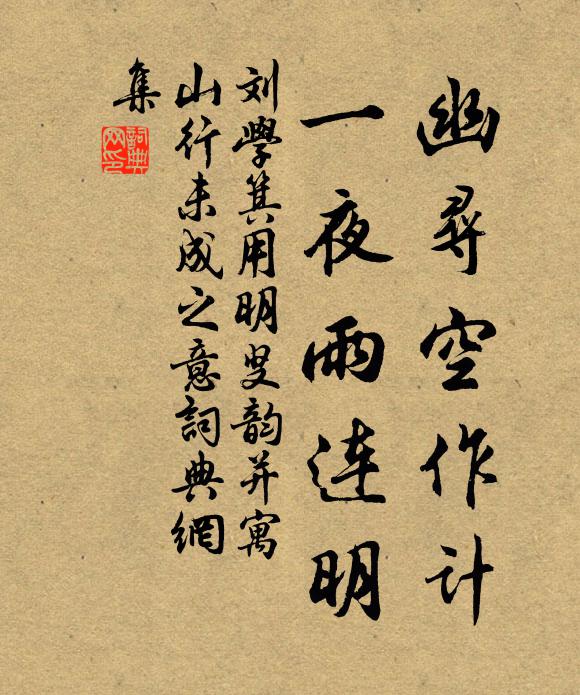 幽尋空作计
一夜雨连明
刘學箕用明叟韵并寓
山行未成之意詞典網
集
詞典网印